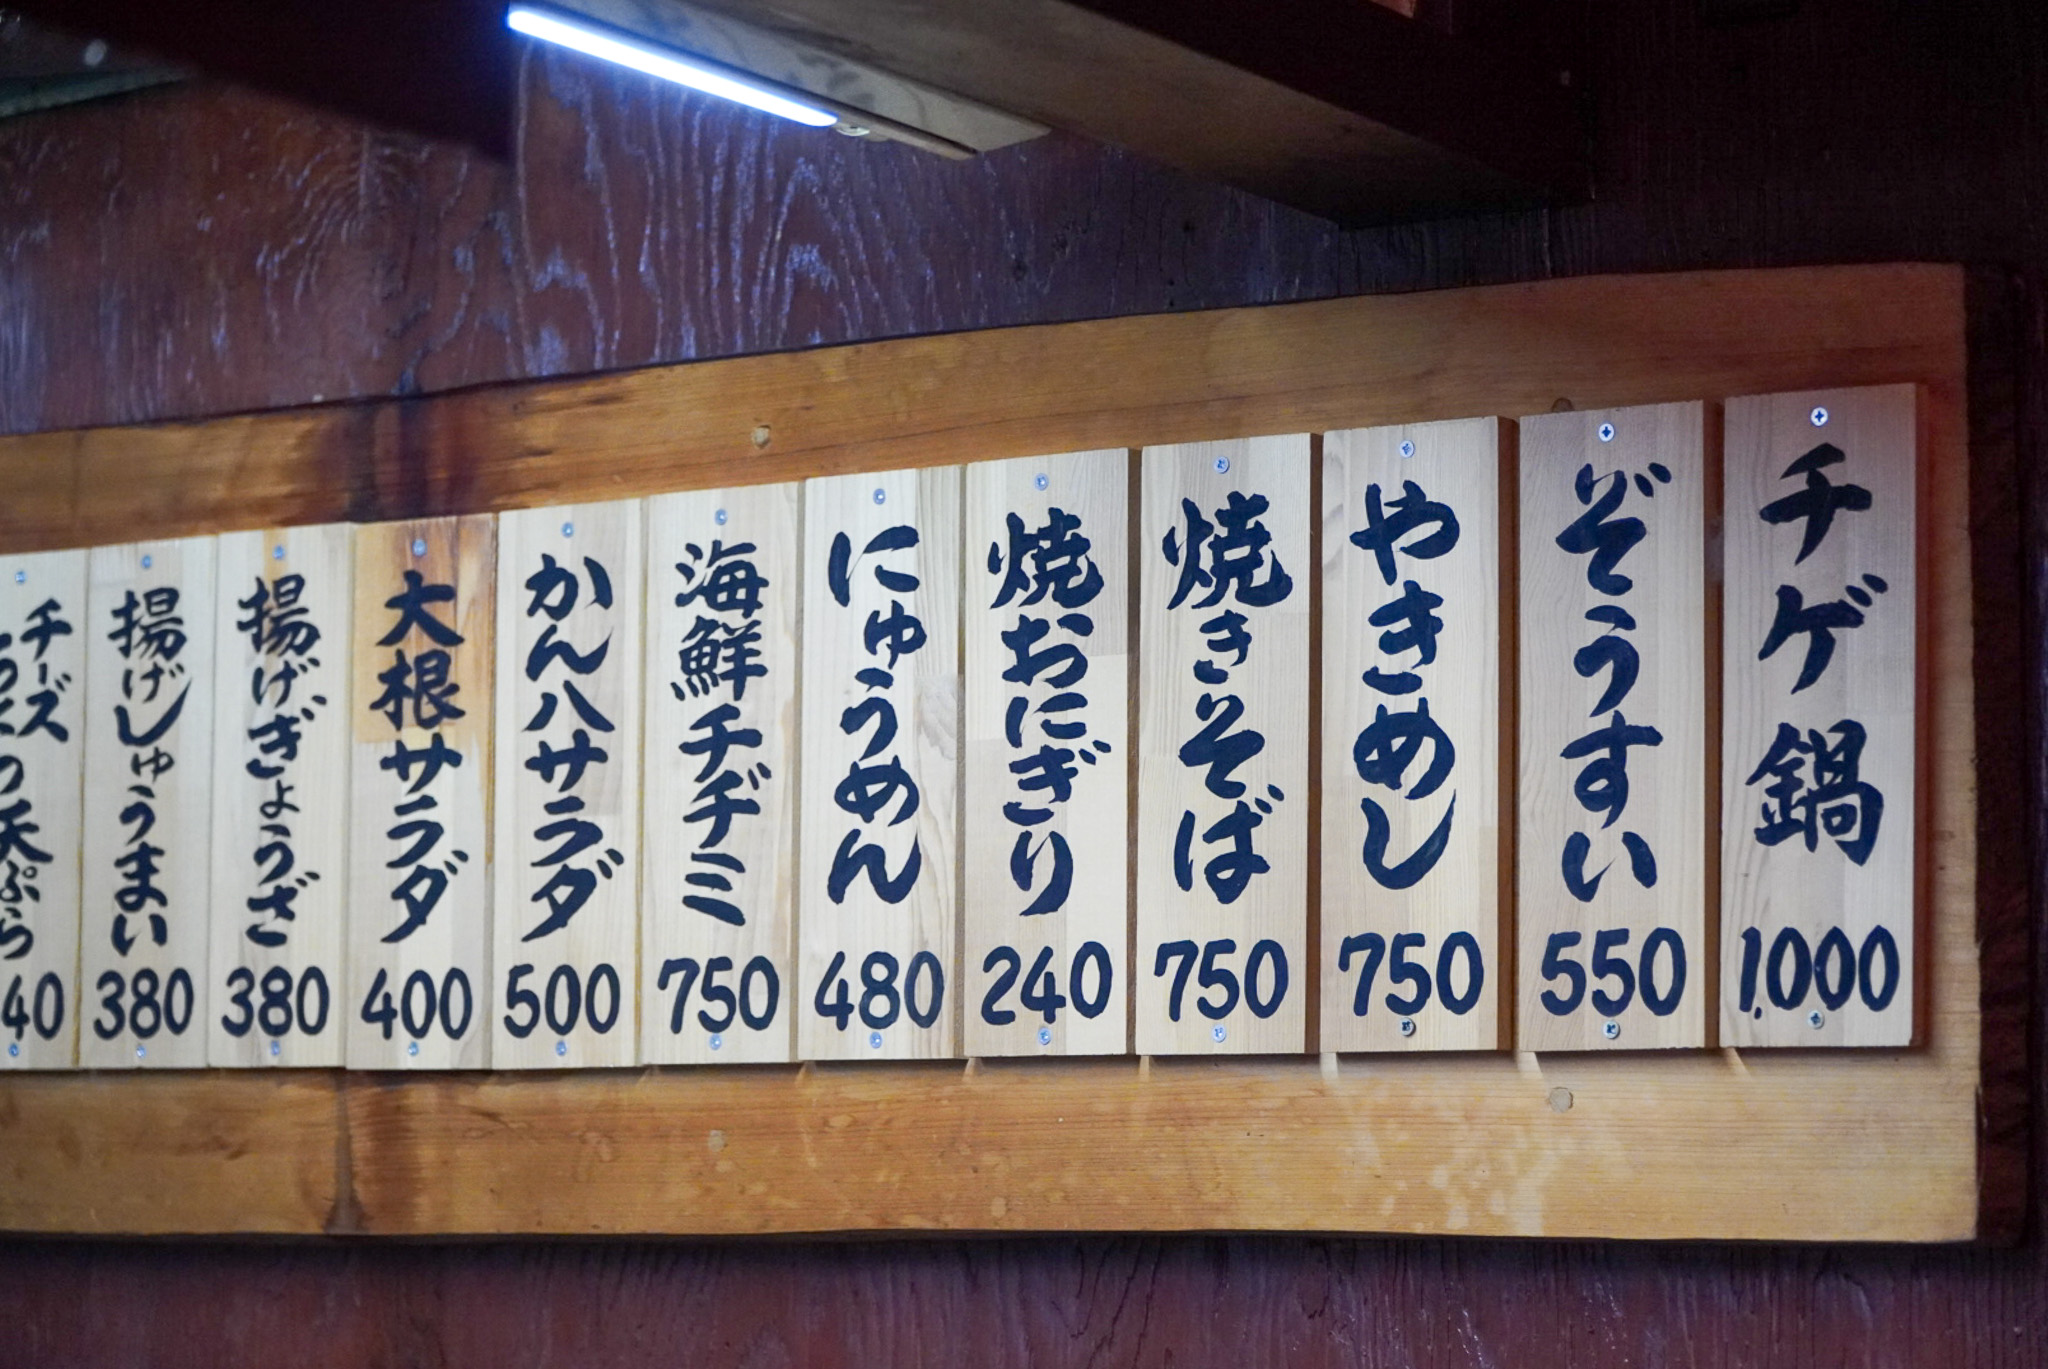 チゲ鍋
1,000
ぞうすい
550
やきめし
750
焼きそば
750
焼おにぎり
240
にゅうめん
480
海鮮チヂミ
750
かんハサラダ
500
大根サラダ
400
揚げぎょうざ
380
揚げしゅうまい
380
チーズ
の天ぷら
40